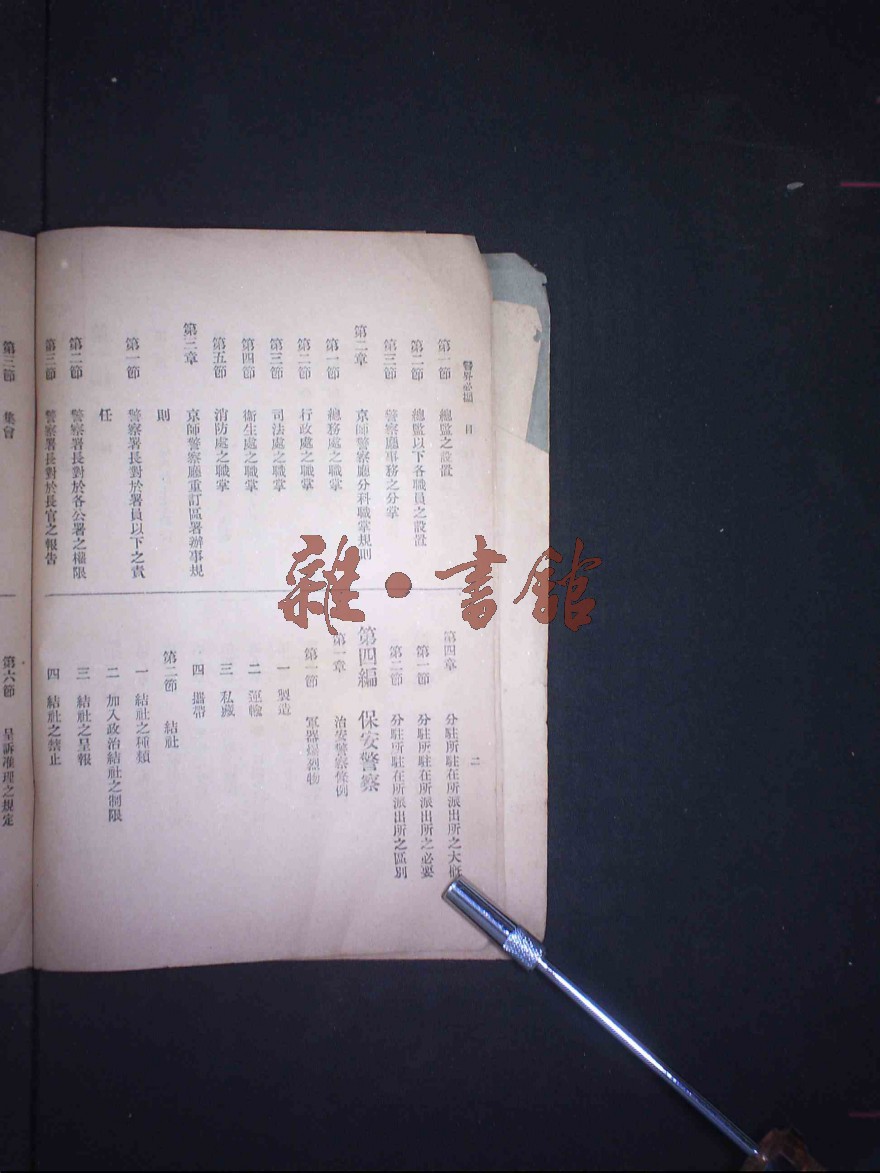 警界必攜　目　二
第一節　總監之設置
第二節　總監以下各職員之設置
第三節　警察廳事務之分掌
第二章　京師警察廳分科職掌規則
第一節　總務處之職掌
第二節　行政處之職掌
第三節　司法處之職掌
第四節　衛生處之職掌
第五節　消防處之職掌
第三章　京師警察廳重訂區署辦事規
則
第一節　警察署長對於署員以下之責
任
第二節　警察署長對於各公署之權限
第三節　警察署長對於長官之報告
第四章　分駐所駐在所派出所之大概
第一節　分駐所駐在所派出所之必要
第二節　分駐所駐在所派出所之區別
第四編　保安警察
第一章　治安警察條例
第一節　軍器爆烈物
一　製造
二　運輸
三　私藏
四　攜帶
第二節　結社
一　結社之種類
二　加入政治結社之制限
三　結社之呈報
四　結社之禁止
第三節　集會
第六節　呈訴准理之規定
雜・書館